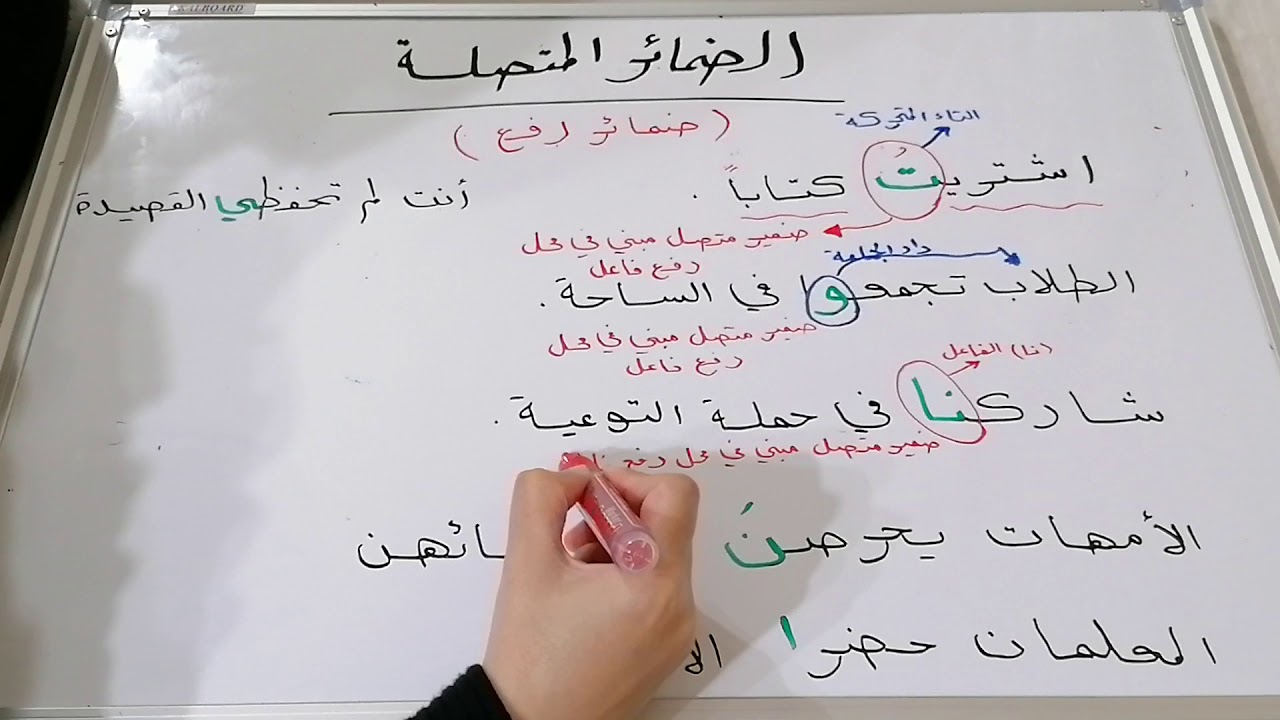 الضمائر المتصلة
( ضمائر رفع )
التاء المتحركة
اشتريتُ كتاباً .
ضمير متصل مبني في محل
رفع فاعل
أنت لم تحفظي القصيدة
واو الجماعة
الطلاب تجمعوا في الساحة .
ضمير متصل مبني في محل
رفع فاعل
(نا) الفاعل
شاركنا في حملة التوعية .
ضمير متصل مبني في محل رفع
الأمهات يحرصنَ
المعلمان حضرا